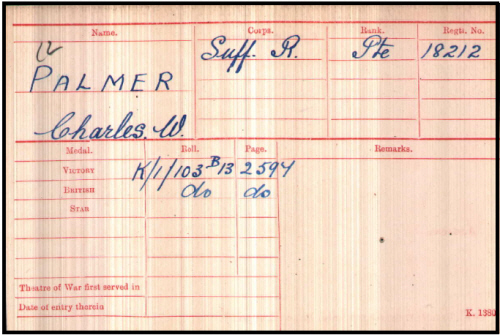 Name. Corps. Rank. Regtl. No.
12
PALMER Suff. R. Pte 18212
Charles. W.
Medal. Roll. Page. Remarks.
VICTORY K/1/103 B13 2594
BRITISH do do
STAR
Theatre of War first served in
Date of entry therein
K. 1380